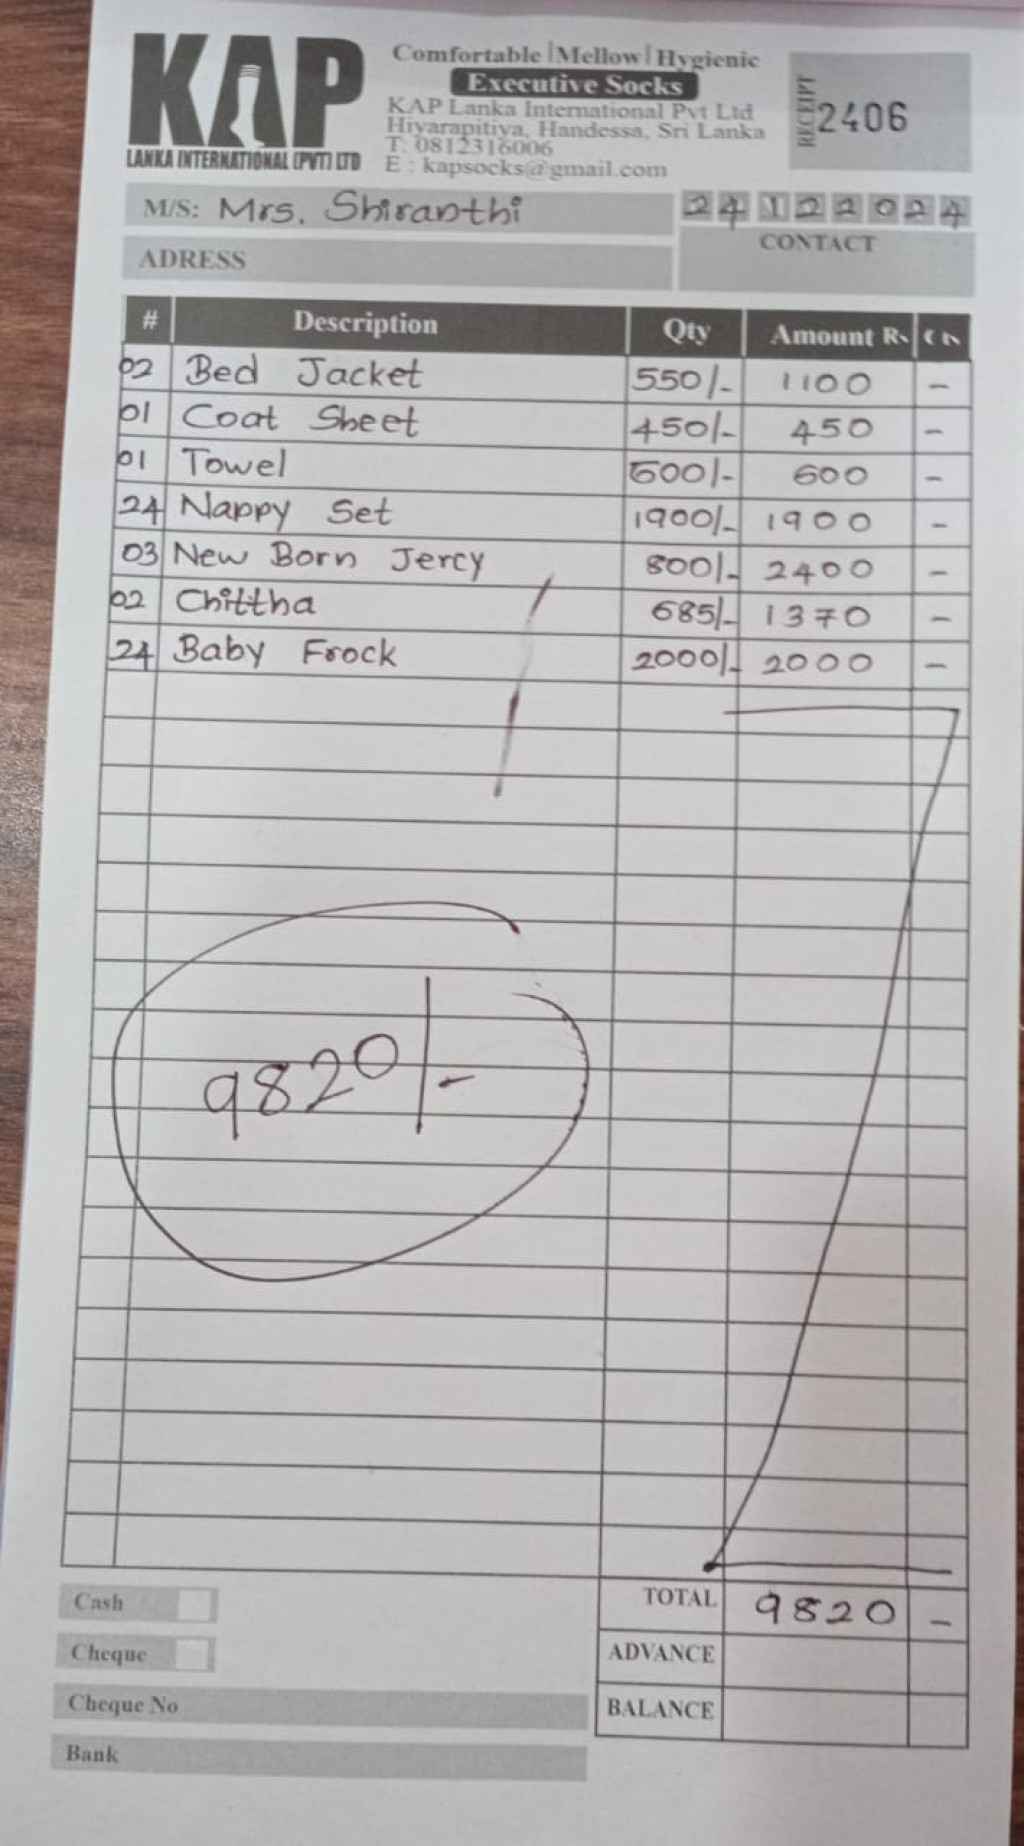 KAP
LANKA INTERNATIONAL (PVT) LTD
Comfortable | Mellow | Hygienic
Executive Socks
KAP Lanka International Pvt Ltd
Hiyarapitiya, Handessa, Sri Lanka
T: 0812316006
E : kapsocks@gmail.com
RECEIPT 2406
M/S: Mrs. Shiranthi
24122024
ADRESS
CONTACT
# Description Qty Amount Rs
02 Bed Jacket 550/- 1100 -
01 Coat Sheet 450/- 450 -
01 Towel 600/- 600 -
24 Nappy Set 1900/- 1900 -
03 New Born Jercy 800/- 2400 -
02 Chittha 685/- 1370 -
24 Baby Frock 2000/- 2000 -
9820/-
Cash
TOTAL 9820 -
Cheque
ADVANCE
Cheque No
BALANCE
Bank